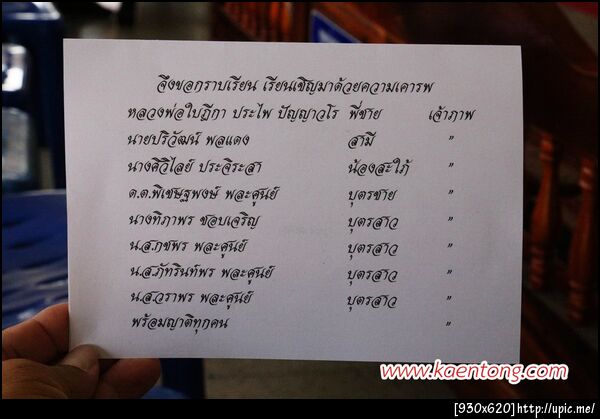 จึงขอกราบเรียน เรียนเชิญมาด้วยความเคารพ
หลวงพ่อใบฎีกา ประไพ ปัญญาวโร พี่ชาย เจ้าภาพ
นายปริวัฒน์ พลแดง สามี "
นางศิวิไลย์ ประจิระสา น้องสะใภ้ "
ด.ต.พิเชษฐพงษ์ พละศูนย์ บุตรชาย "
นางทิภาพร ชอบเจริญ บุตรสาว "
น.ส.กชพร พละศูนย์ บุตรสาว "
น.ส.ภัทรินท์พร พละศูนย์ บุตรสาว "
น.ส.วราพร พละศูนย์ บุตรสาว "
พร้อมญาติทุกคน "
www.kaentong.com
[930x620]http://upic.me/